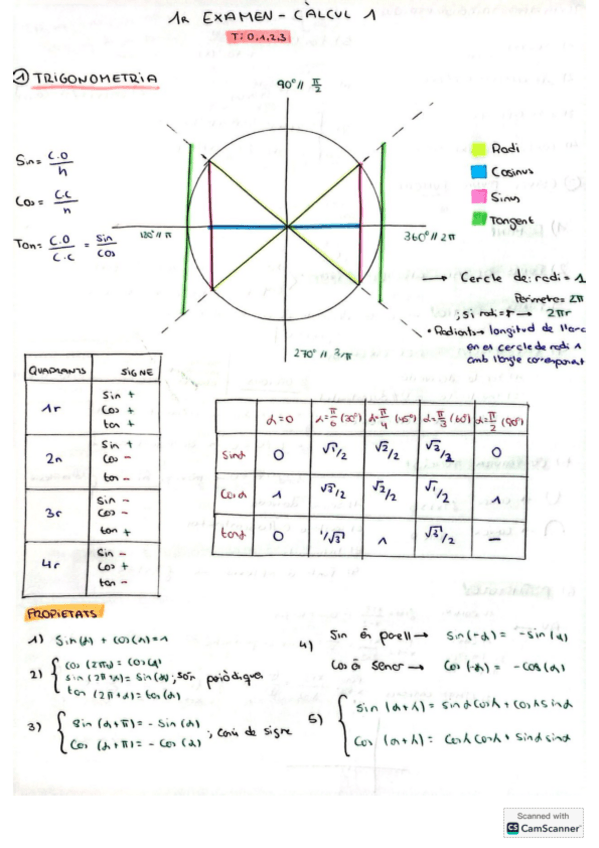 1R EXAMEN - CÀLCUL 1
T: 0,1,2,3
① TRIGONOMETRIA
90º // π/2
Sin = C.O/h
Cos = C.C/h
Tan = C.O/C.C = Sin/Cos
180º // π
360º // 2π
270º // 3/π
Radi
Cosinus
Sinus
Tangent
→ Cercle de: radi = 1
Perímetre = 2π
; si radi = r → 2πr
• Radiants → longitud de l'arc
en el cercle de radi 1
amb l'angle corresponent
QUADRANTS SIGNE
1r Sin +
Cos +
tan +
2n Sin +
Cos -
tan -
3r Sin -
Cos -
tan +
4r Sin -
Cos +
tan -
α=0 α=π/6 (30º) α=π/4 (45º) α=π/3 (60º) α=π/2 (90º)
Sinα 0 √1/2 √2/2 √3/2 0
Cosα 1 √3/2 √2/2 √1/2 1
tanα 0 1/√3 1 √3/2 —
PROPIETATS
1) Sin(α) + Cos(α) = 1
2) Cos (2πα) = Cos(α)
Sin (2π+α) = Sin(α) ; són periòdiques
tan (2π+α) = tan(α)
3) Sin (α+π) = - Sin (α)
Cos (α+π) = - Cos (α) ; canvi de signe
4) Sin és parell → Sin(-α) = -Sin(α)
Cos és senar → Cos(-α) = -Cos(α)
5) Sin (α+α) = Sinα Cosα + Cosα Sinα
Cos (α+α) = Cosα Cosα + Sinα Sinα
Scanned with
CS CamScanner